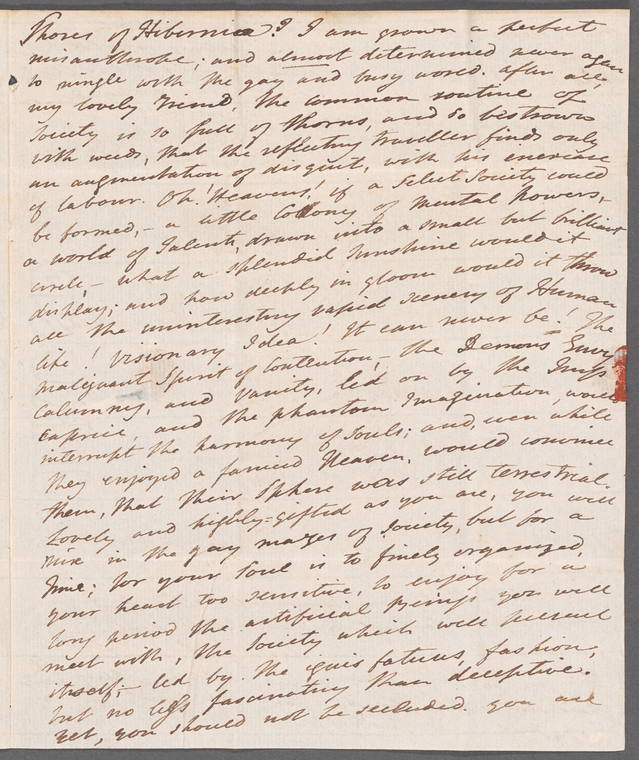 Shores of Hibernia? I am grown a perfect
misanthrope; and almost determined never again
to mingle with the gay and busy world. After all,
my lovely Friend, the common routine of
Society is so full of thorns, and so bestrown
with weeds, that the reflecting traveller finds only
an augmentation of disgust, with his encrease
of labour. Oh! Heavens! if a Select Society could
be formed,- a little Colony of Mental Powers,-
a world of Talents, drawn into a small but brilliant
circle,- what a splendid sunshine would it
display; and how deeply in gloom would it throw
all the uninteresting vapid scenery of Human
life! Visionary Idea! It can never be! The
malignant Spirit of Contention,- the Demons Envy
Calumny, and Vanity, led on by the Imps
Caprice, and the phantom Imagination, would
interrupt the harmony of Souls; and, even while
they enjoyed a fancied Heaven, would convince
them, that their Sphere was still terrestrial.
Lovely and highly-gifted as you are, you will
mix in the gay mazes of Society, but for a
time; for your Soul is to finely organized,
your heart too sensitive, to enjoy for a
long period the artificial Beings you will
meet with, the Society which will present
itself;- led by the ignis fatuus, fashion,
but no less fascinating than deceptive.
Yet, you should not be secluded. you are